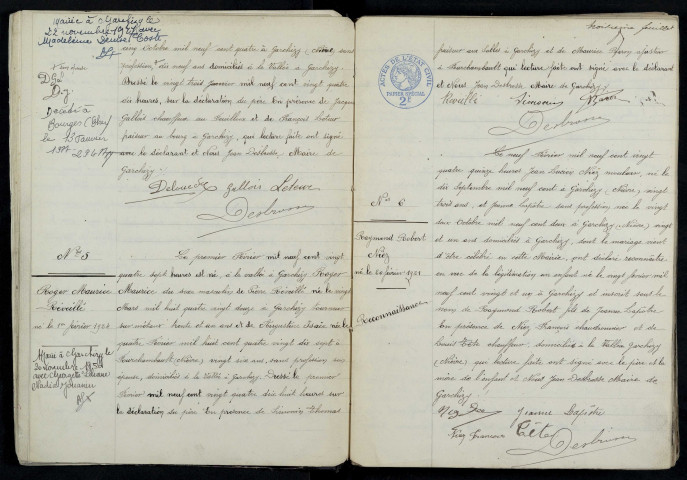 Marié à Garchizy le
22 novembre 1947 avec
Madeleine
Décédé à
Bourges (Cher)
le 23 Janvier
cinq Octobre mil neuf cent quatre à Garchizy (Nièvre) sans
profession, dix neuf ans domiciliés à la Vallée à Garchizy.
Dressé le vingt trois janvier mil neuf cent vingt quatre
dix heures, sur la déclaration du père. En présence de Jacques
Gallois chauffeur au Fourchambault et de François Letour
à Garchizy, qui lecture faite ont signé
avec le déclarant et Nous Jean Desbrosse, Maire de
Garchizy.
Gallois Letour
Nº 5
Roger Maurice
Réveillé
né le 1er février 1924
Marié à Garchizy le
30 novembre
avec Georgette
Le premier Février mil neuf cent vingt
quatre sept heures est né, à la vallée à Garchizy Roger
Maurice du sexe masculin de Pierre Réveillé né le vingt
Mars mil huit cent quatre vingt douze à Garchizy tourneur
sur métaux trente et un ans et de Augustine Isaïe née le
quatre Février mil huit cent quatre vingt dix sept à
Fourchambault (Nièvre), vingt six ans, sans profession son
épouse, domiciliés à la Vallée à Garchizy. Dressé le premier
Février mil neuf cent vingt quatre dix huit heures sur
la déclaration du père. En présence de Thomas
feuillet
à Garchizy et de Maurice
à Fourchambault qui lecture faite ont signé avec le déclarant
et Nous Jean Desbrosse, Maire de Garchizy.
Réveillé Baron
ACTES DE L'ÉTAT CIVIL
PAPIER SPÉCIAL
2F
Nº 6
Raymond Robert
Niez
né le 20 février 1921
Reconnaissance
Le neuf Février mil neuf cent vingt
quatre quinze heures Jean Lucien Niez né le
dix Septembre mil neuf cent à Garchizy (Nièvre), vingt
trois ans, et Jeanne Lapôtre sans profession née le vingt
six Octobre mil neuf cent deux à Garchizy (Nièvre) vingt
et un ans domiciliés à Garchizy, dont le mariage vient
d'être célébré en cette Mairie, ont déclaré reconnaître,
en vue de la légitimation un enfant né le vingt février mil
neuf cent vingt et un à Garchizy et inscrit sous le
nom de Raymond Robert fils de Jeanne Lapôtre
En présence de Niez François chaudronnier et de
Tête chauffeur domiciliés à la Vallée Garchizy
(Nièvre) qui lecture faite ont signé avec le père et la
mère de l'enfant et Nous Jean Desbrosse Maire de
Garchizy
Niez Jeanne Lapôtre
Niez François Tête